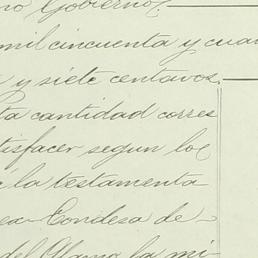 no Gobierno,
mil cincuenta y cua
y siete centavos
ta cantidad corres
tisfacer segun los
la testamenta
Condesa de
del Alamo la mi